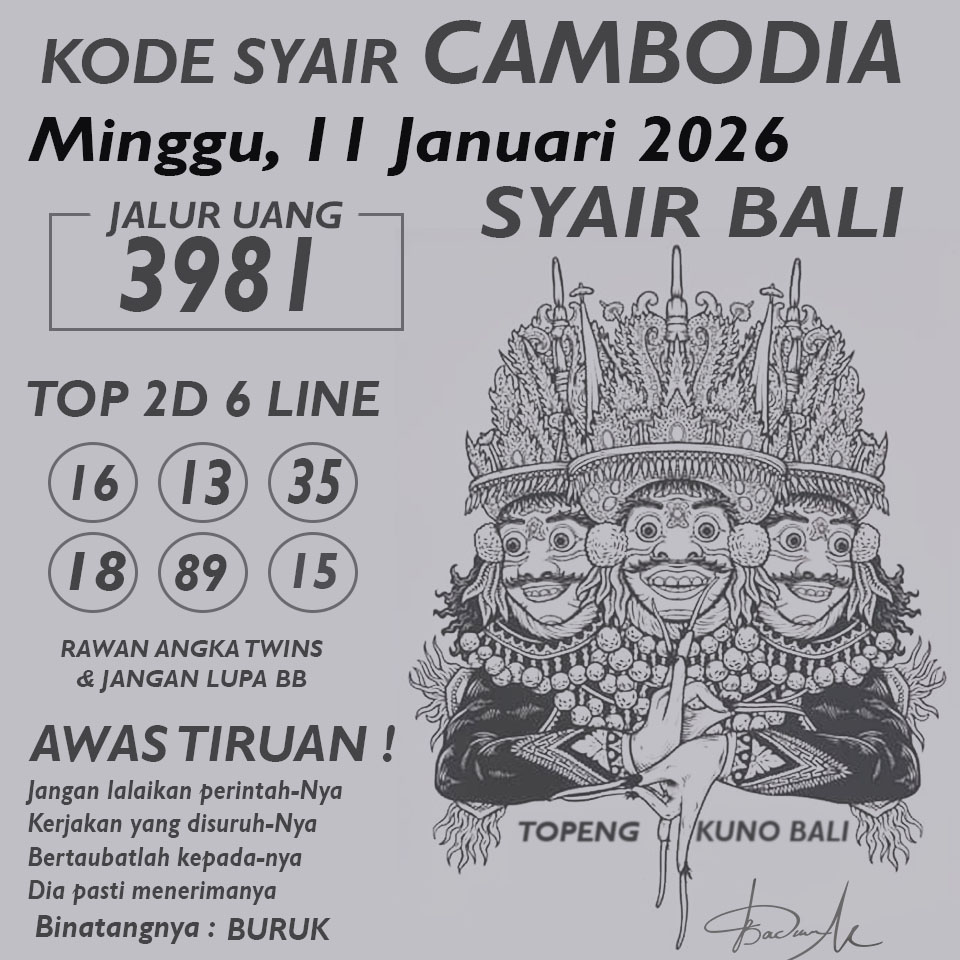 KODE SYAIR CAMBODIA
Minggu, 11 Januari 2026
SYAIR BALI
JALUR UANG
3981
TOP 2D 6 LINE
16 13 35
18 89 15
RAWAN ANGKA TWINS
& JANGAN LUPA BB
AWAS TIRUAN !
Jangan lalaikan perintah-Nya
Kerjakan yang disuruh-Nya
Bertaubatlah kepada-nya
Dia pasti menerimanya
Binatangnya : BURUK
TOPENG KUNO BALI